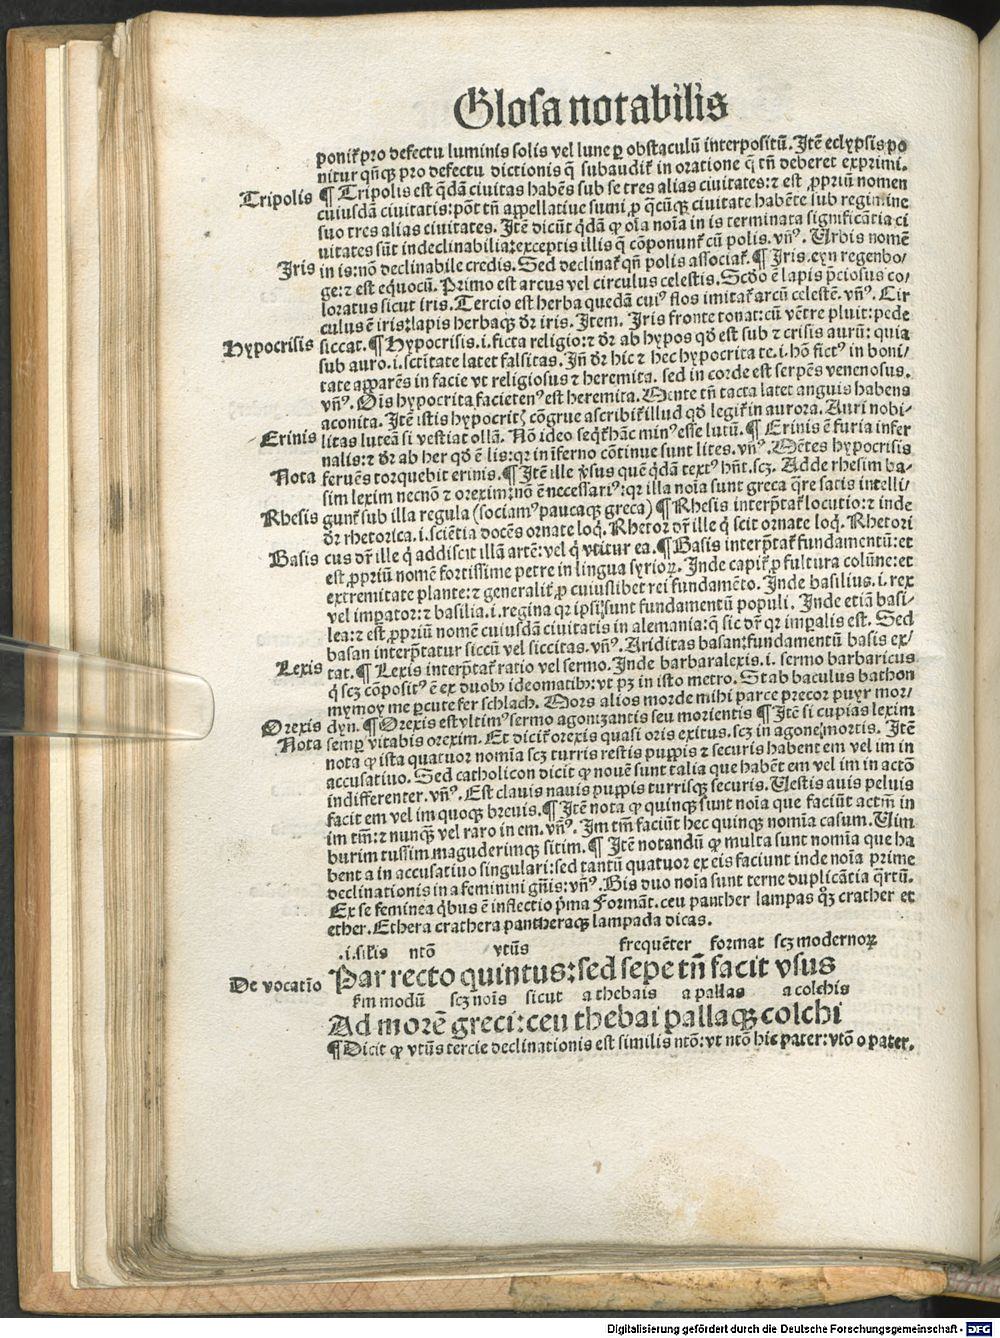 Glosa notabilis
ponit᷑ pro defectu luminis solis vel lune ꝑ obstaculū interpositū. Itē eclypsis po
nitur qn̄qꝫ pro defectu dictionis q̄ subaudit᷑ in oratione q̄ tn̄ deberet exprimi.
Tripolis ¶ Tripolis est q̄dā ciuitas habēs sub se tres alias ciuitates: ⁊ est ꝓpriū nomen
cuiusdā ciuitatis: pōt tn̄ appellatiue sumi ꝓ q̄cūqꝫ ciuitate habēte sub regimine
suo tres alias ciuitates. Itē dicūt q̄dā ꝙ oīa noīa in is terminata significātia ci
uitates sūt indeclinabilia: exceptis illis q̄ cōponunt᷑ cū polis. vn̄ꝰ. Urbis nomē
Iris in is: nō declinabile credis. Sed declinat᷑ qn̄ polis associat᷑. ¶ Iris. eyn regenbo-
ge: ⁊ est equocū. Primo est arcus vel circulus celestis. Scd̄o ē lapis p̄ciosus co/
loratus sicut iris. Tercio est herba quedā cuiꝰ flos imitat᷑ arcū celestē. vn̄ꝰ. Cir
culus ē iris: lapis herbaqꝫ dr̄ iris. Item. Iris fronte tonat: cū vētre pluit: pede
Hypocrisis siccat. ¶ Hypocrisis. i. ficta religio: ⁊ dr̄ ab hypos qd̄ est sub ⁊ crisis aurū: quia
sub auro. i. sctītate latet falsitas. Jn̄ dr̄ hic ⁊ hec hypocrita te. i. hō fictꝰ in boni/
tate apparēs in facie vt religiosus ⁊ heremita. sed in corde est serpēs venenosus.
vn̄ꝰ. Oīs hypocrita facietenꝰ est heremita. Mente tn̄ tacta latet anguis habens
aconita. Itē istis hypocritꝭ cōgrue ascribit᷑ illud qd̄ legit᷑ in aurora. Auri nobi-
Erinis litas luteā si vestiat ollā. Nō ideo seqt᷑ hāc minꝰ esse lutū. ¶ Erinis ē furia infer
nalis: ⁊ dr̄ ab her qd̄ ē lis: qr in īferno cōtinue sunt lites. vn̄ꝰ. Mētes hypocrisis
Nota feruēs torquebit erinis. ¶ Itē ille v̄sus quē q̄dā textꝰ hn̄t. scꝫ. Adde rhesim ba-
sim lexim necnō ⁊ orexim: nō ē necessariꝰ: qr illa noīa sunt greca q̄re satis intelli-
Rhesis gunt᷑ sub illa regula (sociamꝰ paucaqꝫ greca) ¶ Rhesis interp̄tat᷑ locutio: ⁊ inde
dr̄ rhetorica. i. sciētia docēs ornate loq̄. Rhetor dr̄ ille q̄ scit ornate loq̄. Rhetori
Basis cus dr̄ ille q̄ addiscit illā artē: vel q̄ vtitur ea. ¶ Basis interp̄tat᷑ fundamentū: et
est ꝓpriū nomē fortissime petre in lingua syrioꝝ. Inde capit᷑ ꝓ fultura colūne: et
extremitate plante: ⁊ generalit᷑ ꝓ cuiuslibet rei fundamēto. Inde basilius. i. rex
vel imꝑator: ⁊ basilia. i. regina qr ipsi sunt fundamentū populi. Inde etiā basi-
lea: ⁊ est ꝓpriū nomē cuiusdā ciuitatis in alemania: q̄ sic dr̄ qr imꝑalis est. Sed
basan interp̄tatur siccū vel siccitas. vn̄ꝰ. Ariditas basan: fundamentū basis ex/
Lexis tat. ¶ Lexis interp̄tat᷑ ratio vel sermo. Inde barbaralexis. i. sermo barbaricus
q̄ scꝫ cōpositꝰ ē ex duobꝰ ideomatibꝰ: vt pꝫ in isto metro. Stab baculus bathon
mymoy me ꝑcute fer schlach. Mors alios morde mihi parce precor puyr mor/
Orexis dyn. ¶ Orexis est vltimꝰ sermo agonizantis seu morientis ¶ Itē si cupias lexim
Nota semꝑ vitabis orexim. Et dicit᷑ orexis quasi oris exitus. scꝫ in agone mortis. Itē
nota ꝙ ista quatuor nomīa scꝫ turris restis puppis ⁊ securis habent em vel im in
accusatiuo. Sed catholicon dicit ꝙ nouē sunt talia que habēt em vel im in actō
indifferenter. vn̄ꝰ. Est clauis nauis puppis turrisqꝫ securis. Uestis auis peluis
facit em vel im quoqꝫ breuis. ¶ Itē nota ꝙ quinqꝫ sunt noīa que faciūt actm̄ in
im tm̄: ⁊ nunqꝫ vel raro in em. vn̄ꝰ. Im tm̄ faciūt hec quinqꝫ nomīa casum. Uim
burim tussim maguderimqꝫ sitim. ¶ Itē notandū ꝙ multa sunt nomīa que ha
bent a in accusatiuo singulari: sed tantū quatuor ex eis faciunt inde noīa prime
declinationis in a feminini gn̄is: vn̄ꝰ. Bis duo noīa sunt terne duplicātia q̄rtū.
Ex se feminea q̄bus ē inflectio p̄ma Formāt. ceu panther lampas qꝫ crather et
ether. Ethera crathera pantheraqꝫ lampada dicas.
.i. silīs ntō vtūs frequēter format scꝫ modernoꝝ
De vocatīo Par recto quintus: sed sepe tn̄ facit vsus
k̄m modū scꝫ noīs sicut a thebais a pallas a colchis
Ad morē greci: ceu thebai pallaqꝫ colchi
¶ Dicit ꝙ vtūs tercie declinationis est similis ntō: vt ntō hic pater: vtō o pater.
Digitalisierung gefördert durch die Deutsche Forschungsgemeinschaft - DFG